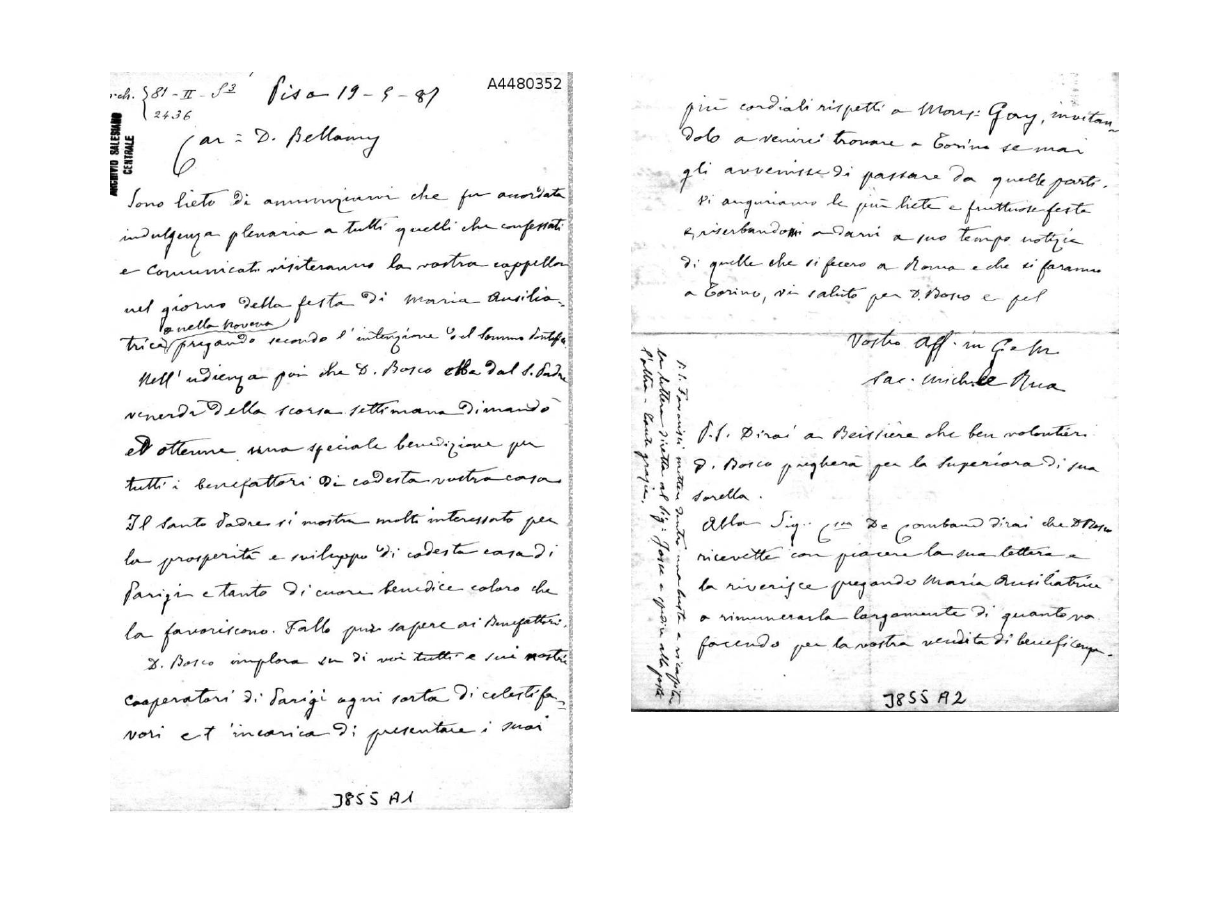 A4480352
rch. 81 - II - S3
2436
ARCHIVIO SALESIANO
CENTRALE
Pisa 19-5-87
Car = D. Bellamy
Sono lieto di annunziarvi che fu accordata
indulgenza plenaria a tutti quelli che confessati
e comunicati visiteranno la vostra cappella
nel giorno della festa di Maria Ausilia-
o nella Novena
trice, pregando secondo l'intenzione del Sommo Pontefice
Nell'udienza poi che D. Bosco ebbe dal S. Padre
venerdì della scorsa settimana dimandò
ed ottenne una speciale benedizione per
tutti i benefattori di codesta vostra casa
Il Santo Padre si mostra molto interessato per
la prosperità e sviluppo di codesta casa di
Parigi e tanto di cuore benedice coloro che
la favoriscono. Fallo pure sapere ai Benefattori.
D. Bosco implora su di voi tutti e sui nostri
cooperatori di Parigi ogni sorta di celesti fa-
vori e t'incarica di presentare i suoi
J855 A1
più cordiali rispetti a Mons: Gay, invitan-
dolo a venirci trovare a Torino se mai
gli avvenisse di passare da quelle parti.
Vi auguriamo le più liete e fruttuose feste
e, riserbandomi a darvi a suo tempo notizia
di quelle che si fecero a Roma e che si faranno
a Torino, vi saluto per D. Bosco e pel
Vostro Aff. in G. e M.
Sac. Michele Rua
P.S. Dirai a Beissière che ben volontieri
D. Bosco pregherà per la Superiora di sua
sorella.
Alla Sig. De Combaud dirai che D. Bosco
ricevette con piacere la sua lettera e
la riverisce pregando Maria Ausiliatrice
a rimunerarla largamente di quanto va
facendo per la vostra vendita di beneficenza.
P.S. Favorisci metter dentro una busta e ricapita
la lettera diretta al Sig: Josse e spedir alla posta
l'altra. Tante grazie.
J855 A2